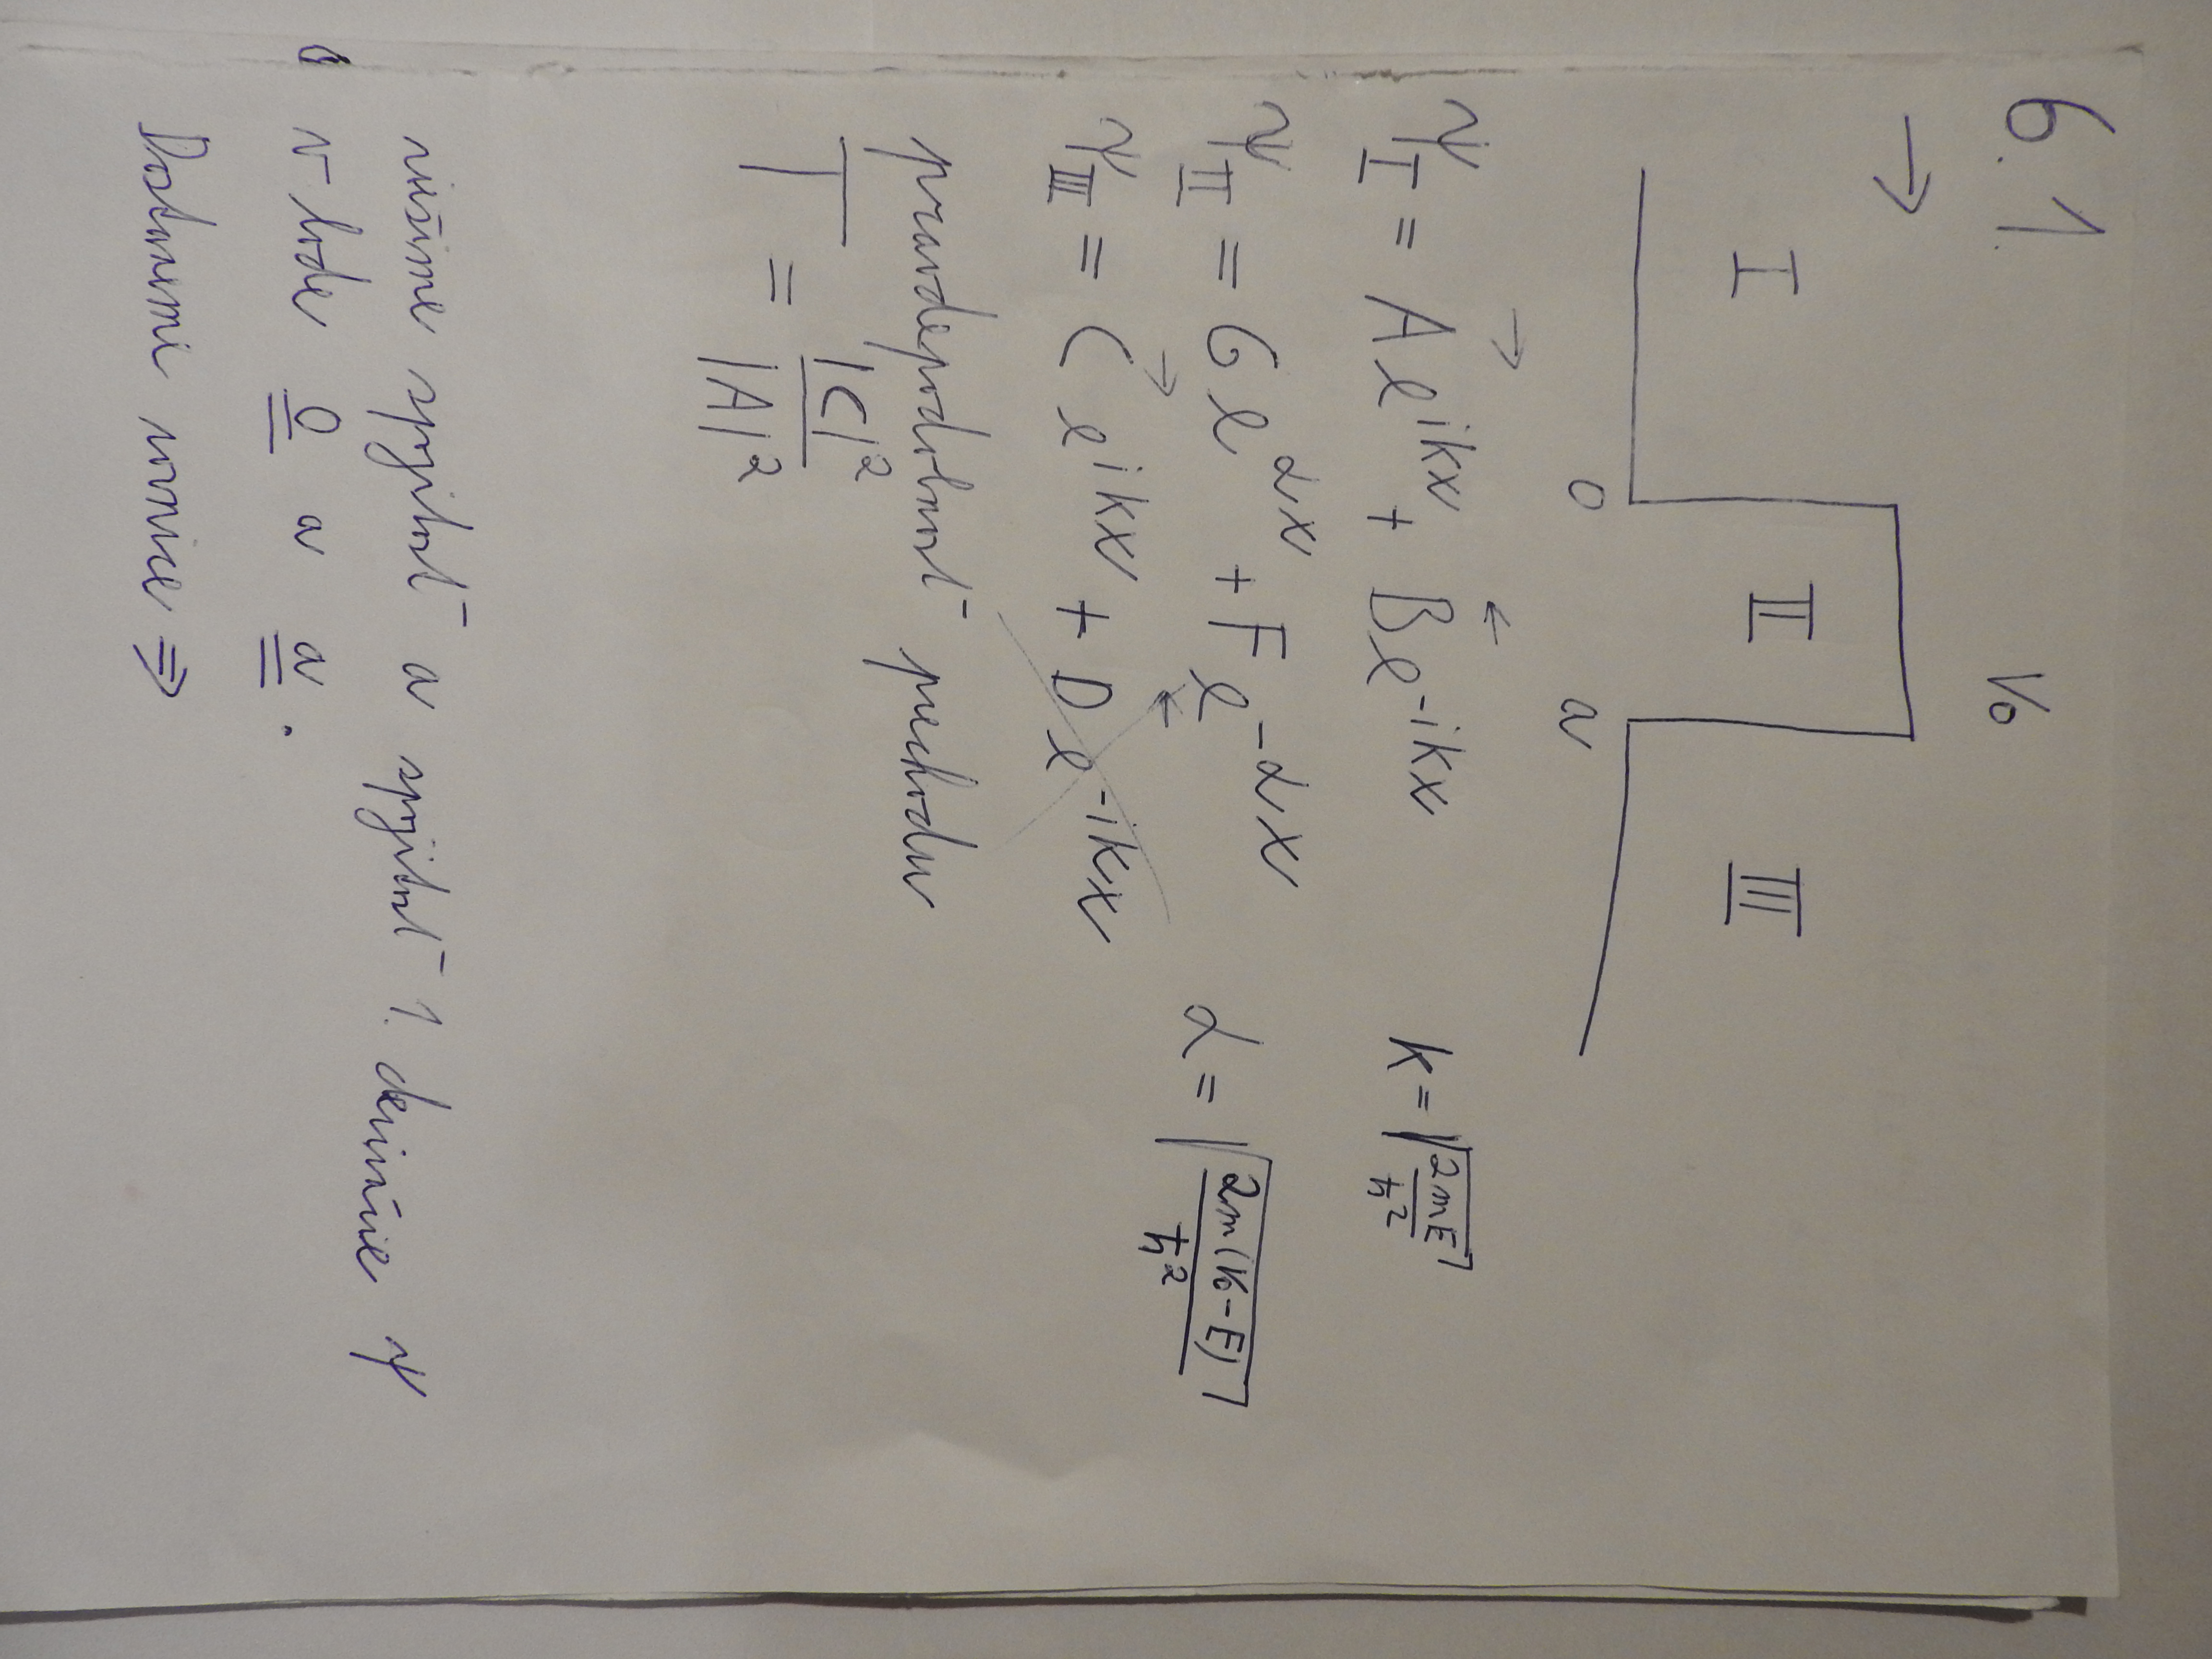 6.1.
V₀
→
I II III
0 a
→ ←
ψ_I = A e^{ikx} + B e^{-ikx} k = √(2mE/ħ²)
ψ_II = G e^{αx} + F e^{-αx} α = √(2m(V₀-E)/ħ²)
→ ←
ψ_III = C e^{ikx} + D e^{-ikx}
pravdepodobnosť prechodu
T = |C|²/|A|²
riešime spojitosť a spojitosť 1. derivácie ψ
v bode 0 a a.
Dostaneme rovnice ⇒